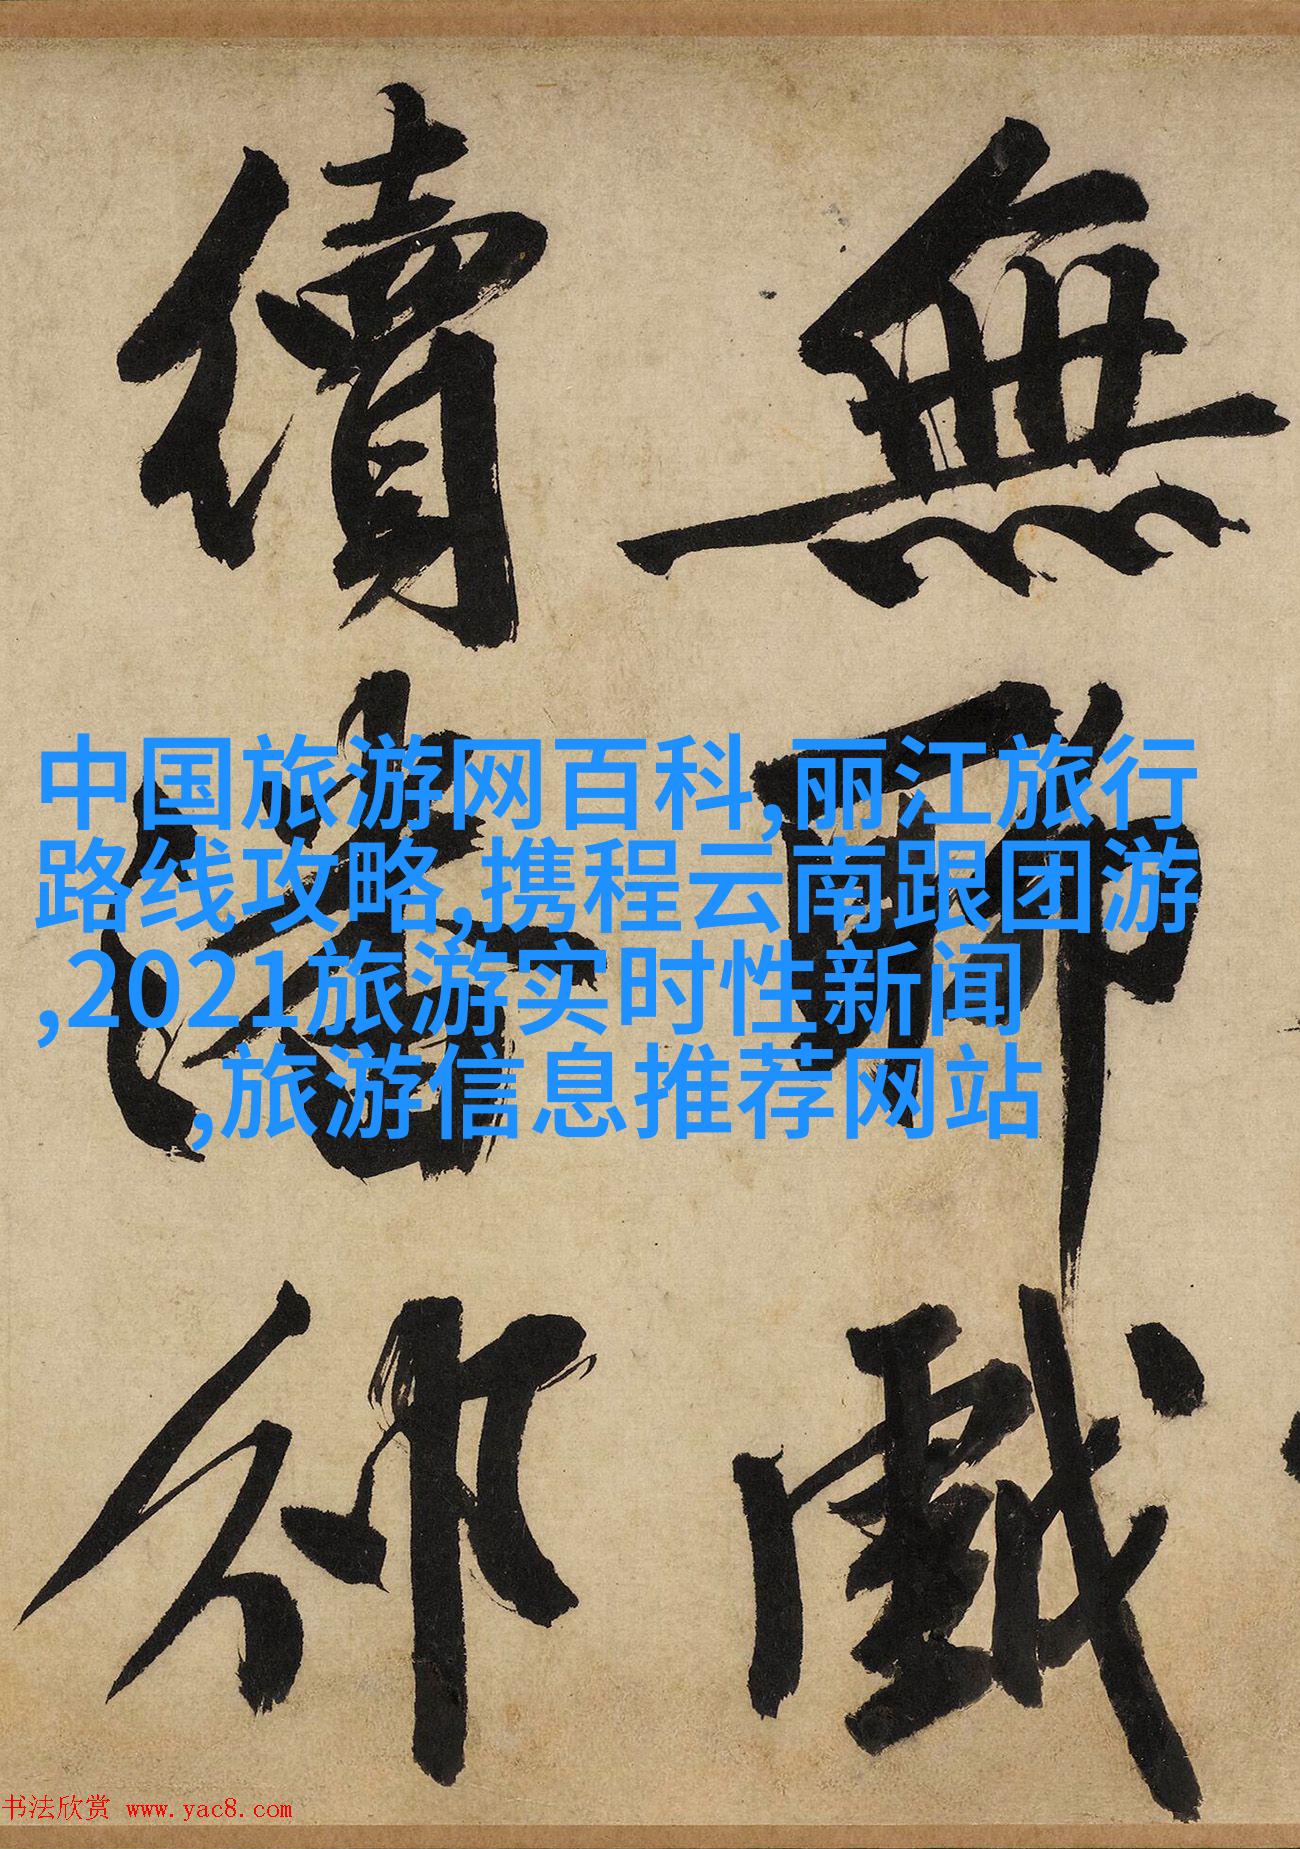 無聊戲
續
中国旅游网百科,丽江旅行
路线攻略,携程云南跟团游
,2021旅游实时性新闻
,旅游信息推荐网站
书法欣赏 www.yac8.com